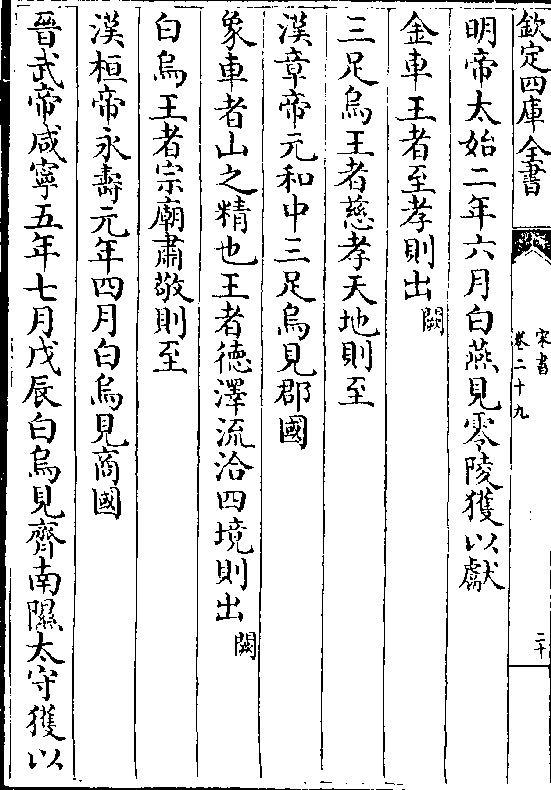 欽定四庫全書
宋書
卷二十九
二十
明帝太始二年六月白燕見零陵獲以獻
金車王者至孝則出闕
三足烏王者慈孝天地則至
漢章帝元和中三足烏見郡國
象車者山之精也王者德澤流洽四境則出闕
白烏王者宗廟肅敬則至
漢桓帝永壽元年四月白烏見商國
晉武帝咸寧五年七月戊辰白烏見齊南隰太守獲以